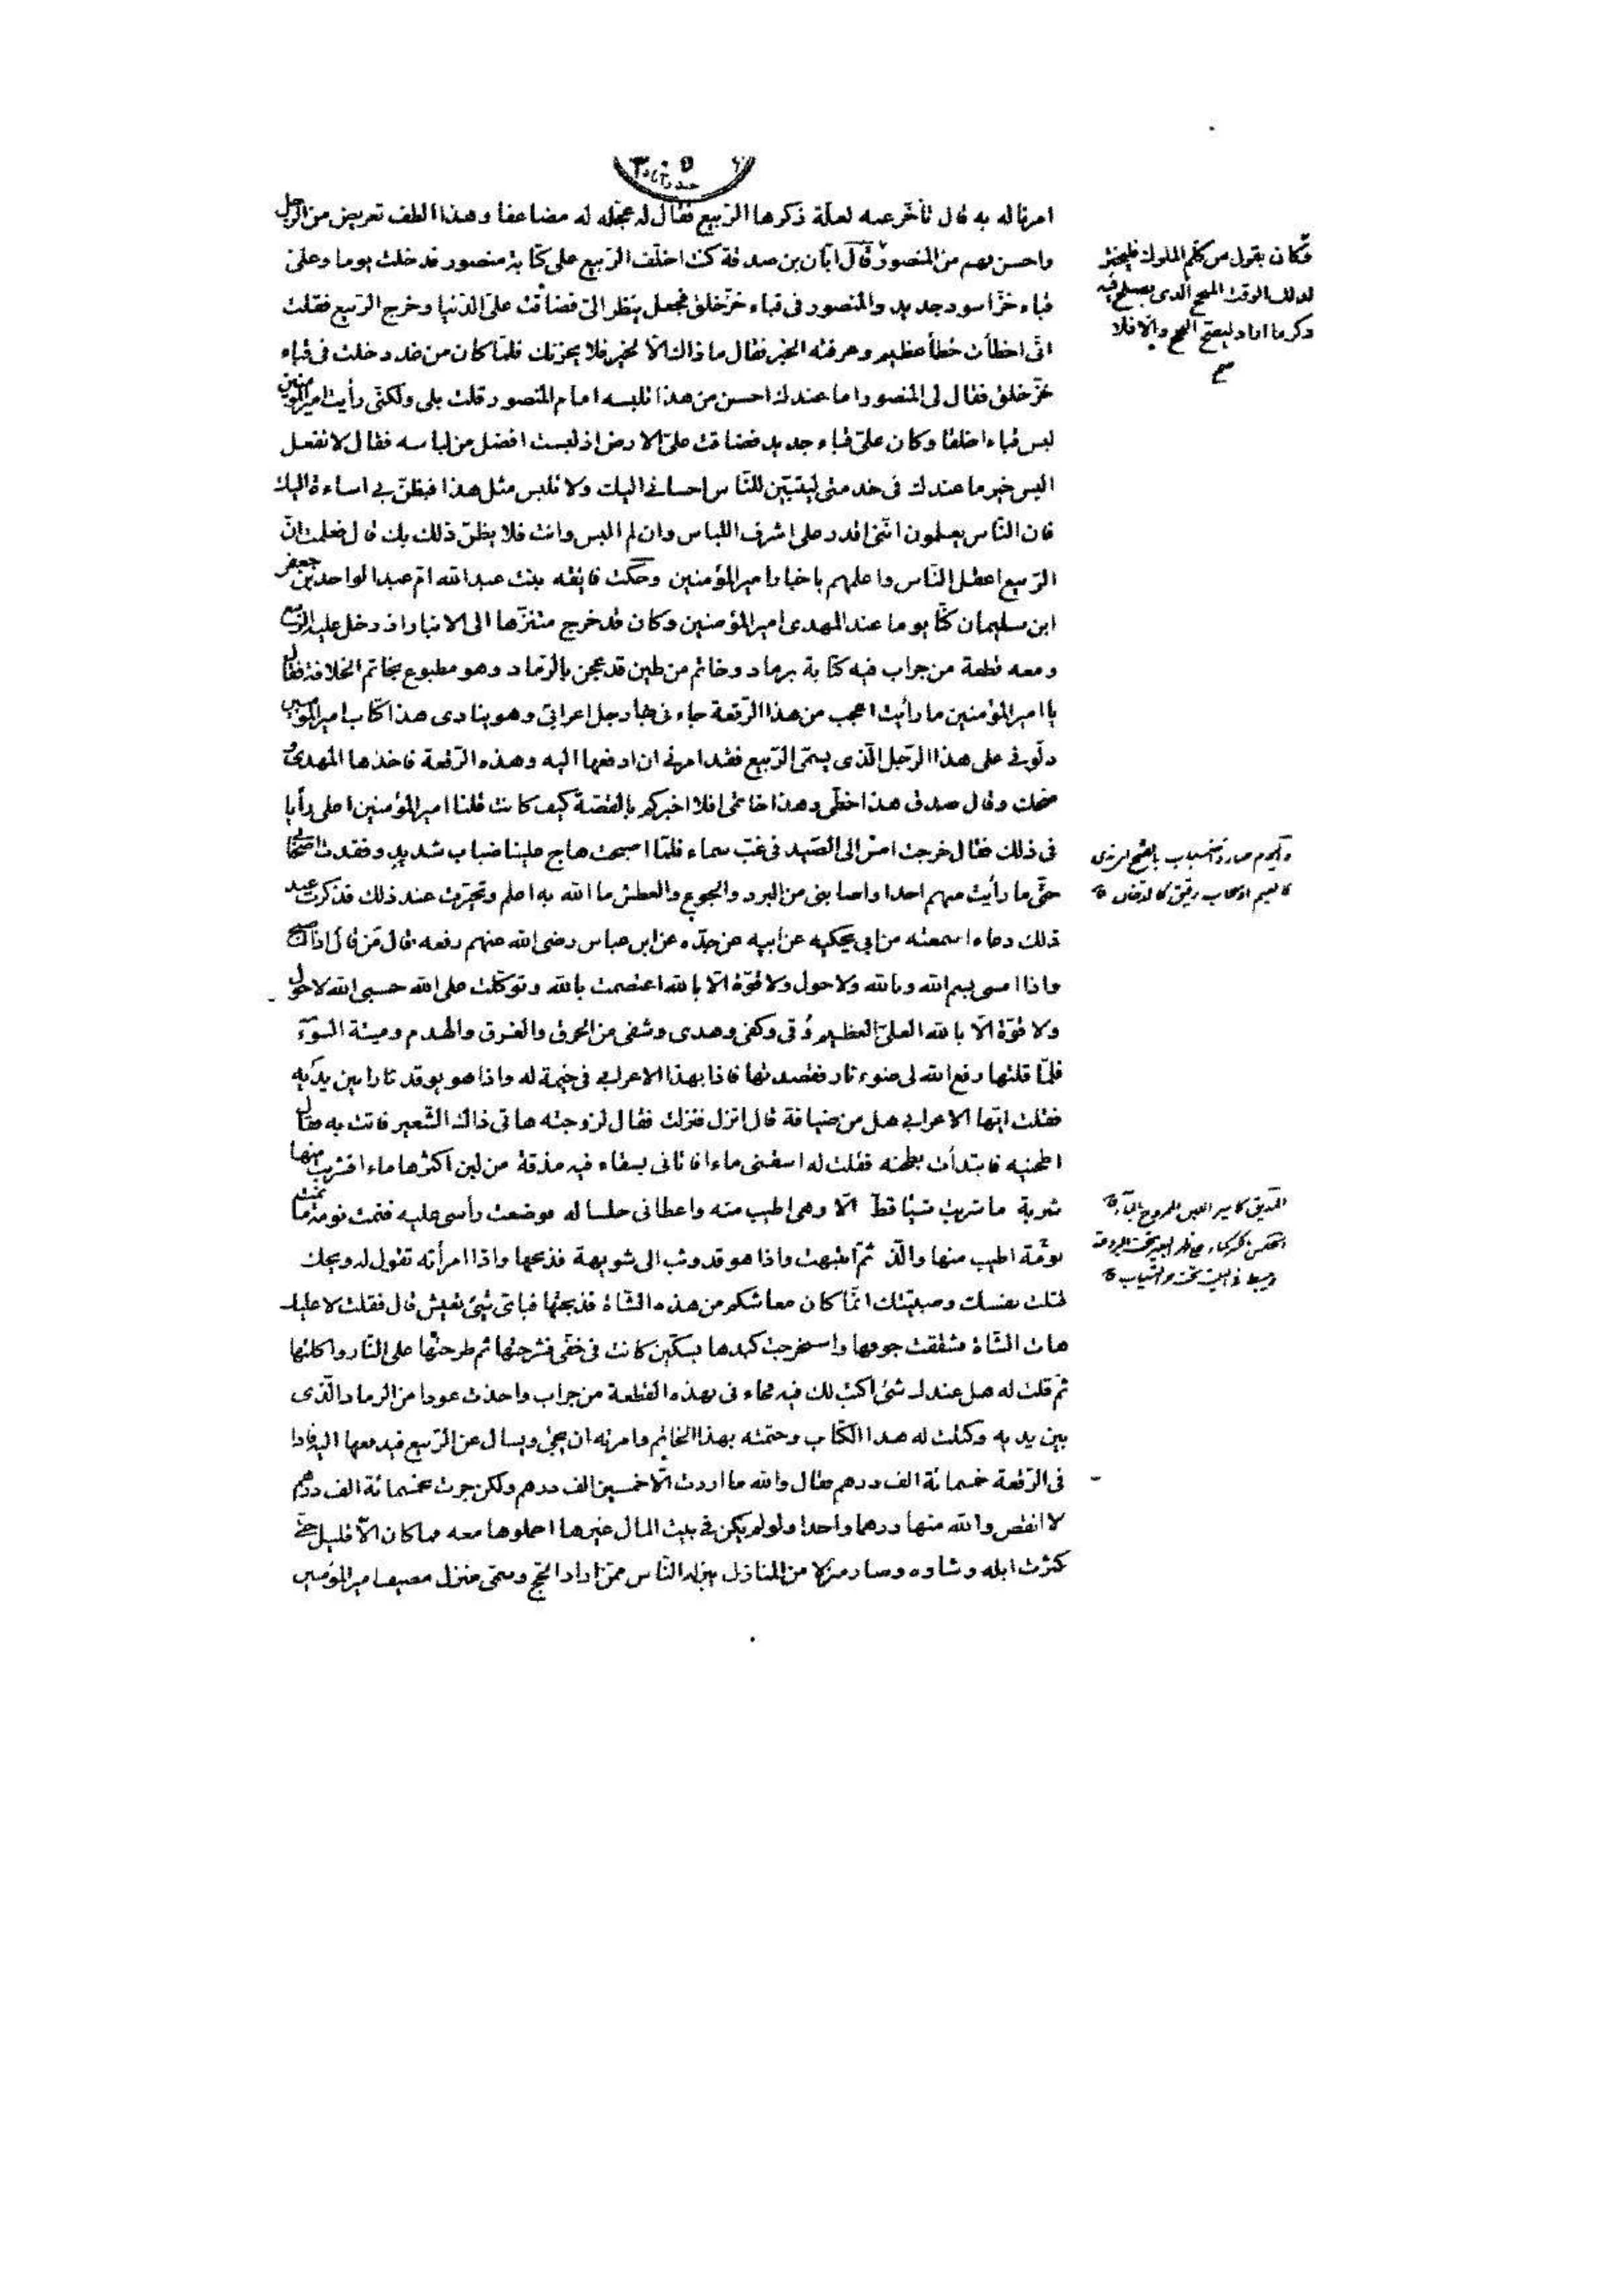 امرنا له به قال تأخر عنه لعلة ذكرها الربيع فقال له عجله له مضاعفا وهذا الطف تعريض من الرجل
واحسن فهم من المنصور قال ابان بن صدقة كنت اخلف الربيع على كتابة منصور فدخلت يوما وعلىّ
قباء خزّ اسود جديد والمنصور فى قباء خزّ خلق فجعل ينظر الىّ فضاقت علىّ الدنيا وخرج الربيع فقلت
انى اخطأت خطأ عظيم وعرفته الخبر فقال ما ذاك الّا لخير فلا يحزنك فلمّا كان من غد دخلت فى قباء
خزّ خلق فقال لى المنصور اما عندك احسن من هذا تلبسه امام المنصور قلت بلى ولكنى رأيت امير المؤمنين
لبس قباء اخلقا وكان علىّ قباء جديد فضاقت علىّ الارض اذ لبست افضل من لباسه فقال لا تفعل
البس خير ما عندك فى خدمتى ليتبيّن للنّاس احسانى اليك ولا تلبس مثل هذا فيظنّ بى اساءة اليك
فان النّاس يعلمون انّنى اقدر على اشرف اللباس وان لم البس وانت فلا يظنّ ذلك بك قال فعلمت انّ
الربيع اعقل النّاس واعلمهم باخبار امير المؤمنين وحكت فايقه بنت عبد الله امّ عبد الواحد بن جعفر
ابن سليمان كنّا يوما عند المهدى امير المؤمنين وكان قد خرج متنزّها الى الانبار اذ دخل عليه الربيع
ومعه قطعة من جراب فيه كتابة برماد وخاتم من طين قد عجن بالرّماد وهو مطبوع بخاتم الخلافة فقال
يا امير المؤمنين ما رأيت اعجب من هذا الرّقعة جاءنى بها رجل اعرابىّ وهو ينادى هذا كتاب امير المؤمنين
دلّونى على هذا الرّجل الّذى يسمّى الرّبيع فقد امرنى ان ادفعها اليه وهذه الرّقعة فاخذها المهدىّ و
ضحك وقال صدق هذا خطّى وهذا خاتمى افلا اخبركم بالقصّة كيف كانت قلنا امير المؤمنين اعلى رأيا
فى ذلك فقال خرجت امس الى الصّيد فى غبّ سماء فلمّا اصبحت هاج علينا ضباب شديد وفقدت اصحابى
حتّى ما رأيت منهم احدا واصابنى من البرد والجوع والعطش ما الله به اعلم وتحيّرت عند ذلك فذكرت عند
ذلك دعاء اسمعته من ابى يحكيه عن ابيه عن جدّه عن ابن عباس رضى الله عنهم رفعه قال من قال اذا اصبح
واذا امسى بسم الله وبالله ولا حول ولا قوّة الّا بالله اعتصمت بالله وتوكّلت على الله حسبى الله لا حول
ولا قوّة الّا بالله العلىّ العظيم وُقى وكفى وهدى وشفى من الحرق والغرق والهدم وميتة السّوء
فلمّا قلتها رفع الله لى ضوء نار فقصدتها فاذا بهذا الاعرابى فى خيمة له واذا هو يوقد نارا بين يديه
فقلت ايّها الاعرابى هل من ضيافة قال انزل فنزلت فقال لزوجته هاتى ذاك الشّعير فاتت به فقال
اطحنيه فابتدأت بطحنه فقلت له اسقنى ماء فاتانى بسقاء فيه مذقة من لبن اكثرها ماء فشربت منها
شربة ما شربت شيئا قطّ الّا وهى اطيب منه واعطانى حلسا له فوضعت رأسى عليه فنمت نومة ما نمت
نومة اطيب منها والذّ ثمّ انتبهت واذا هو قد وثب الى شويهة فذبحها واذا امرأته تقول له ويحك
قتلت نفسك وصبيتك انّما كان معاشكم من هذه الشّاة فذبحتها فباىّ شىء نعيش قال فقلت لا عليك
هات الشّاة فشققت جوفها واستخرجت كبدها بسكّين كانت فى خفّى فشرحتها ثم طرحتها على النّار واكلتها
ثمّ قلت له هل عندك شئ اكتب لك فيه فجاءنى بهذه القطعة من جراب واخذت عودا من الرماد الّذى
بين يديه وكتبت له هذا الكتاب وختمته بهذا الخاتم وامرته ان يجئ ويسال عن الرّبيع فيدفعها اليه فاذا
فى الرّقعة خمسمائة الف درهم فقال والله ما اردت الّا خمسين الف درهم ولكن جرت بخمسمائة الف درهم
لا انقص والله منها درهما واحدا ولو لم يكن فى بيت المال غيرها احملوها معه فما كان الّا قليل حتّى
كثرت ابله وشاوه وصار منزلا من المنازل ينزله النّاس ممّن اراد الحجّ وسمّى منزل مضيف امير المؤمنين
فكان يقول من كلم الملوك فليختر
لذلك الوقت الذى يصلح فيه
ذكر ما اراد ليصحّ النجح والّا فلا
صح
بالفتح
كالغيم او سحاب رقيق كالدخان
المذيق كامير اللبن الممزوج بالماء